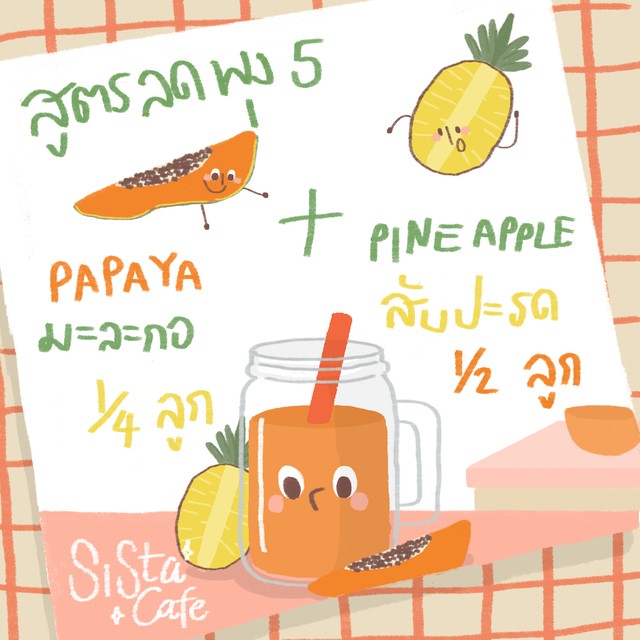 สูตรลดพุง 5
+
PAPAYA
มะละกอ
1/4 ลูก
PINEAPPLE
สับปะรด
1/2 ลูก
SiSta
Cafe